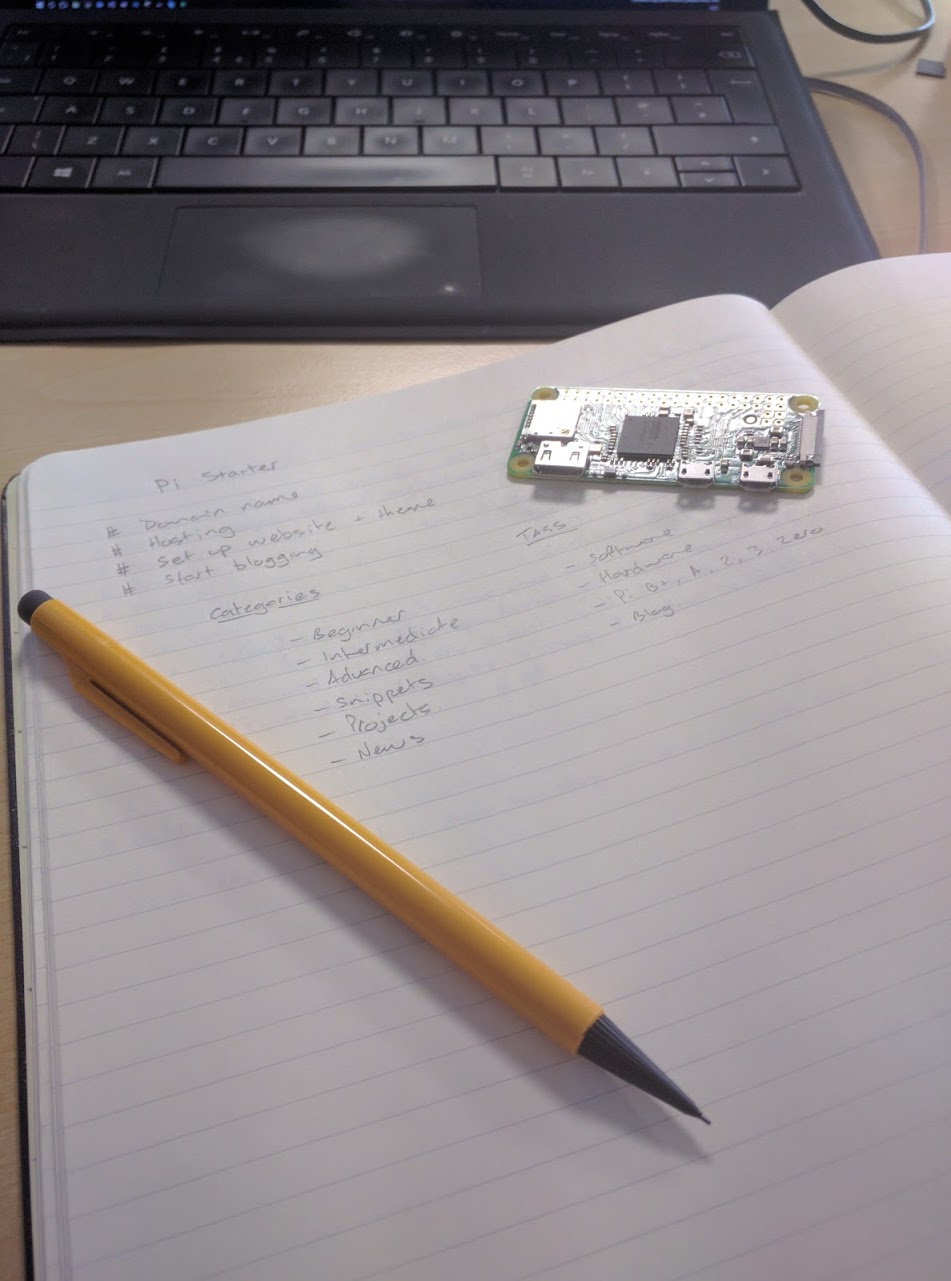 Pi Starter
# Domain name
# Hosting
# Set up website + theme
# Start blogging
Categories
- Beginner
- Intermediate
- Advanced
- Snippets
- Projects
- News
TAGS
- Software
- Hardware
- Pi B+, A, 2, 3, Zero
- Blog
Q W E R T Y U I O P
A S D F G H J K L
Z X C V B N M
Alt